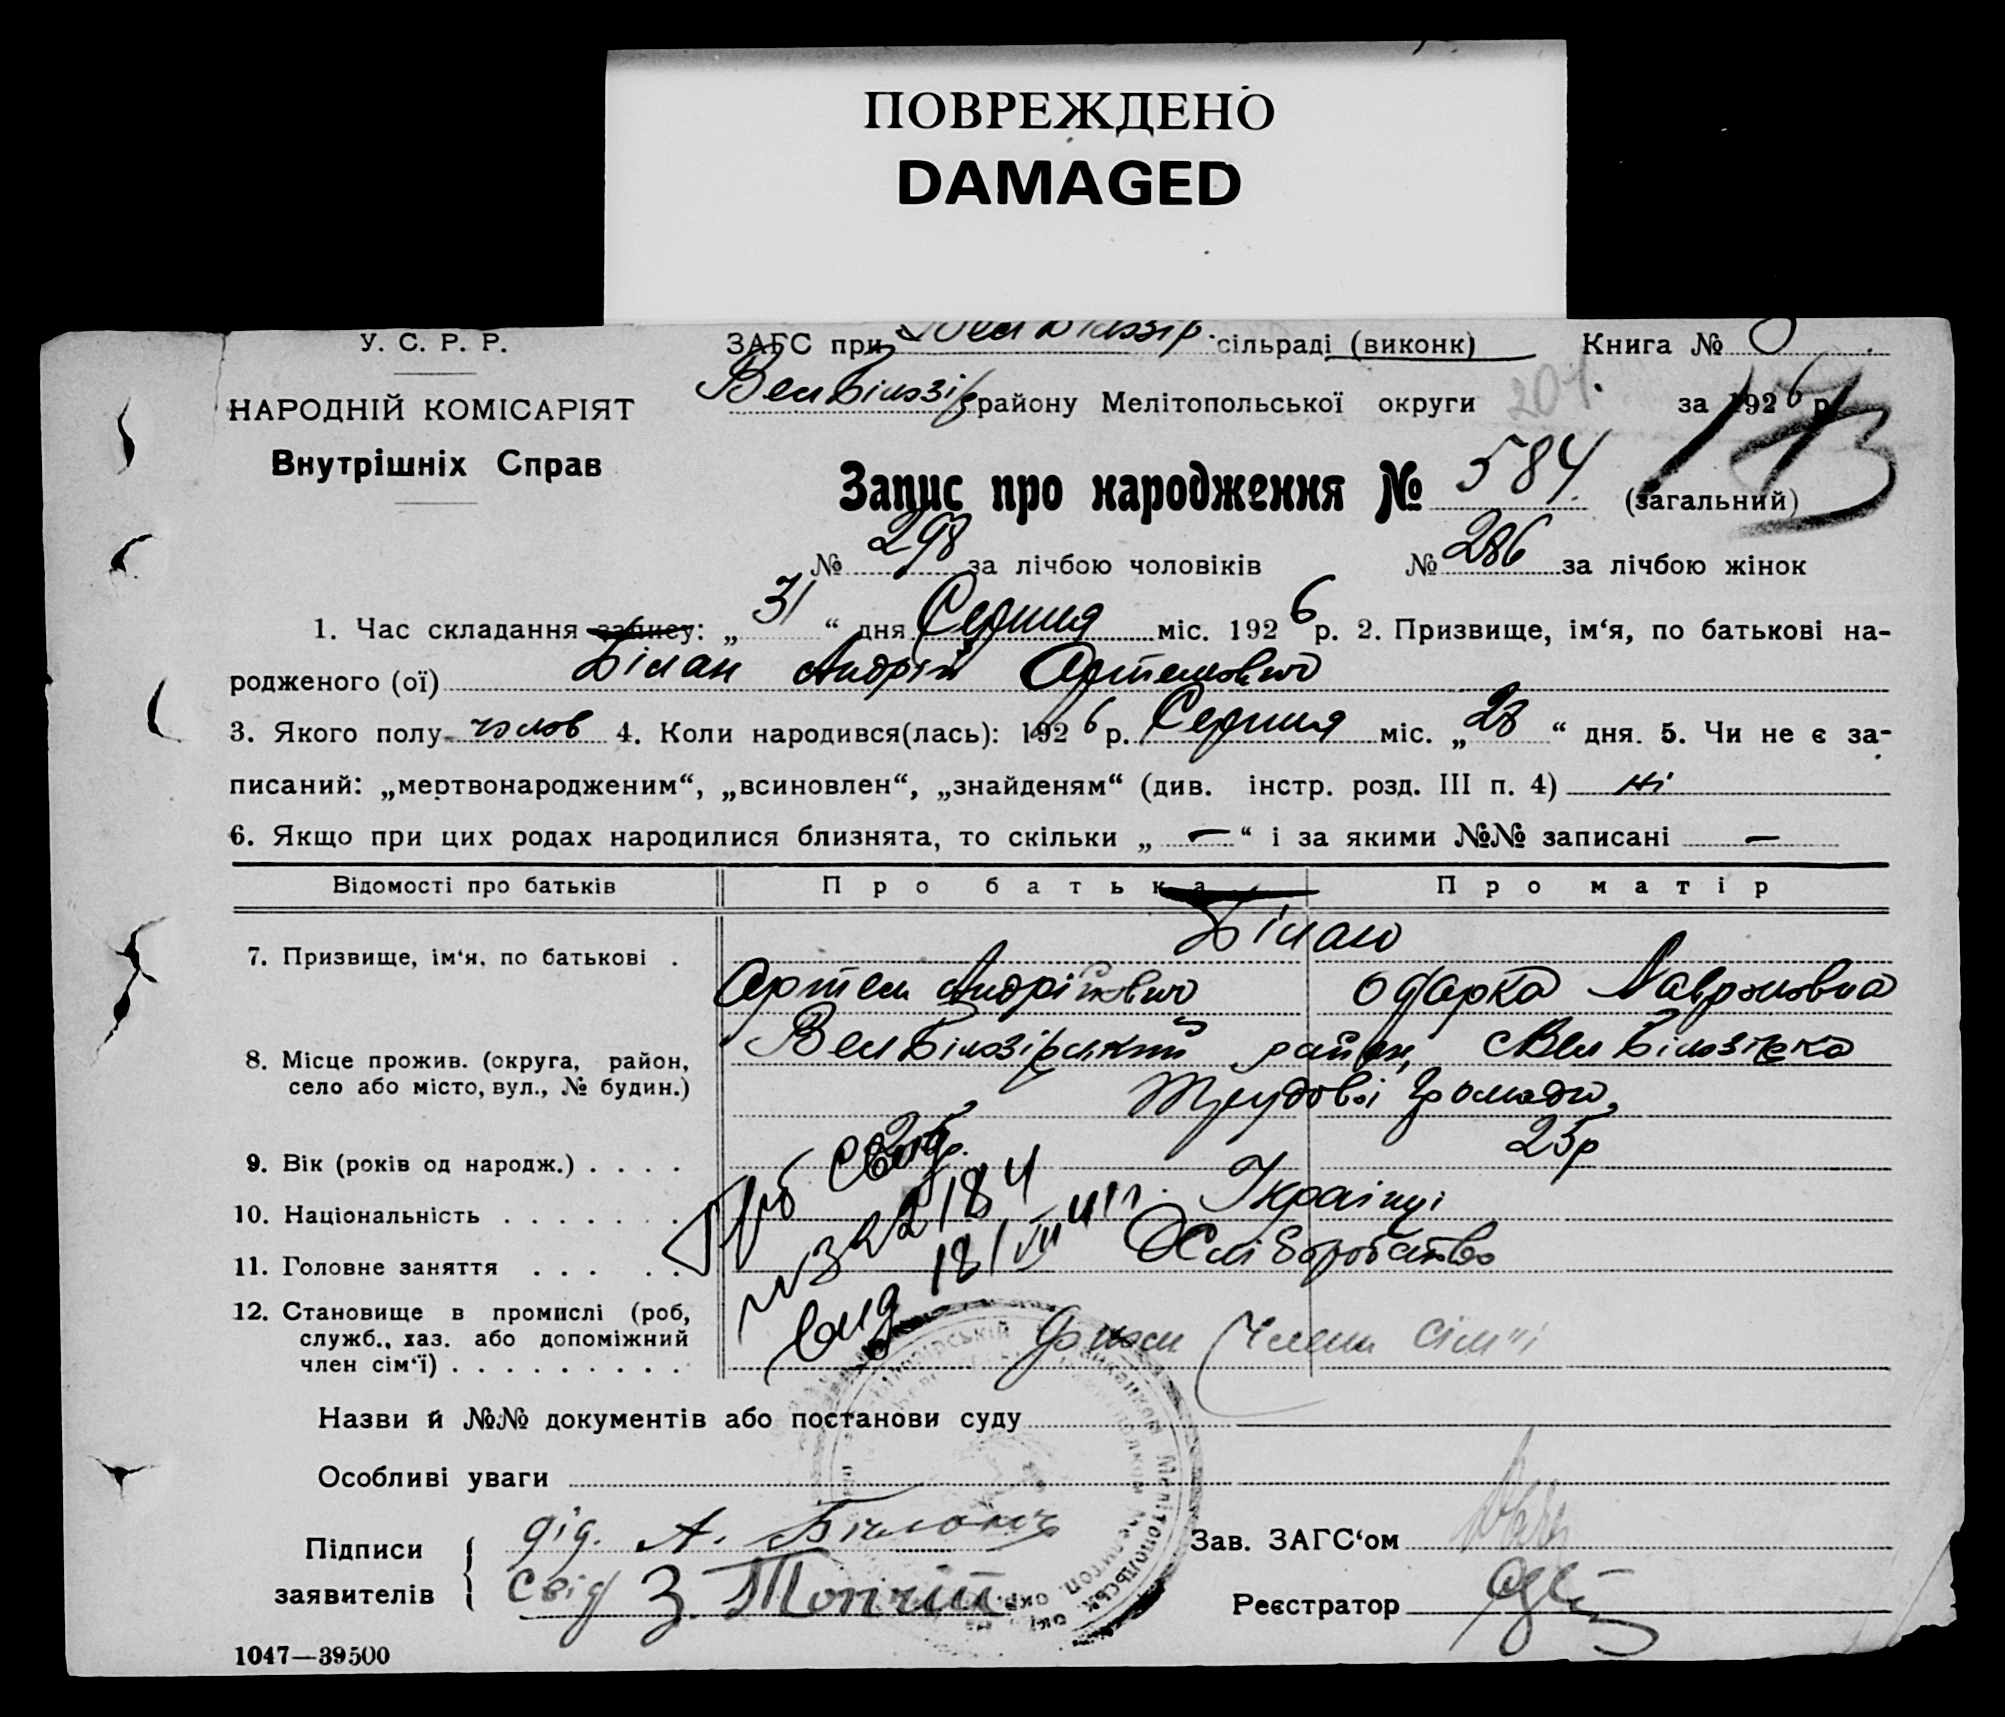 ПОВРЕЖДЕНО
DAMAGED
У. С. Р. Р.
ЗАГС при ВелБілозір сільраді (виконк) Книга №
НАРОДНІЙ КОМІСАРІЯТ
ВелБілозір району Мелітопольської округи 201. за 1926 р.
Внутрішніх Справ
113
Запис про народження № 584 (загальний)
№ 298 за лічбою чоловіків № 286 за лічбою жінок
1. Час складання запису: „ 31 “ дня Серпня міс. 1926 р. 2. Призвище, ім‘я, по батькові на-
родженого (ої) Білан Андрій Артемович
3. Якого полу чолов 4. Коли народився(лась): 1926 р. Серпня міс. „ 28 “ дня. 5. Чи не є за-
писаний: „мертвонародженим“, „всиновлен“, „знайденям“ (див. інстр. розд. III п. 4) ні
6. Якщо при цих родах народилися близнята, то скільки „ — “ і за якими №№ записані —
Відомості про батьків Про батька Про матір
Білан
7. Призвище, ім‘я, по батькові .
Артем Андрійович Одарка Лавровна
8. Місце прожив. (округа, район,
село або місто, вул., № будин.)
ВелБілозірський район, с Вел Білозірка
Трудової Громади,
9. Вік (років од народж.) . . . . 25р
10. Національність . . . . . . . Українці
11. Головне заняття . . . . . Хліборобство
12. Становище в промислі (роб,
служб., хаз. або допоміжний
член сім‘ї) . . . . . . . . . Члени сім'ї
№ 322184
18/VII 41г.
Назви й №№ документів або постанови суду
Особливі уваги
Підписи
заявителів
дід. А. Білан
Свід З. Топчій
Зав. ЗАГС‘ом
Реєстратор
1047—39500